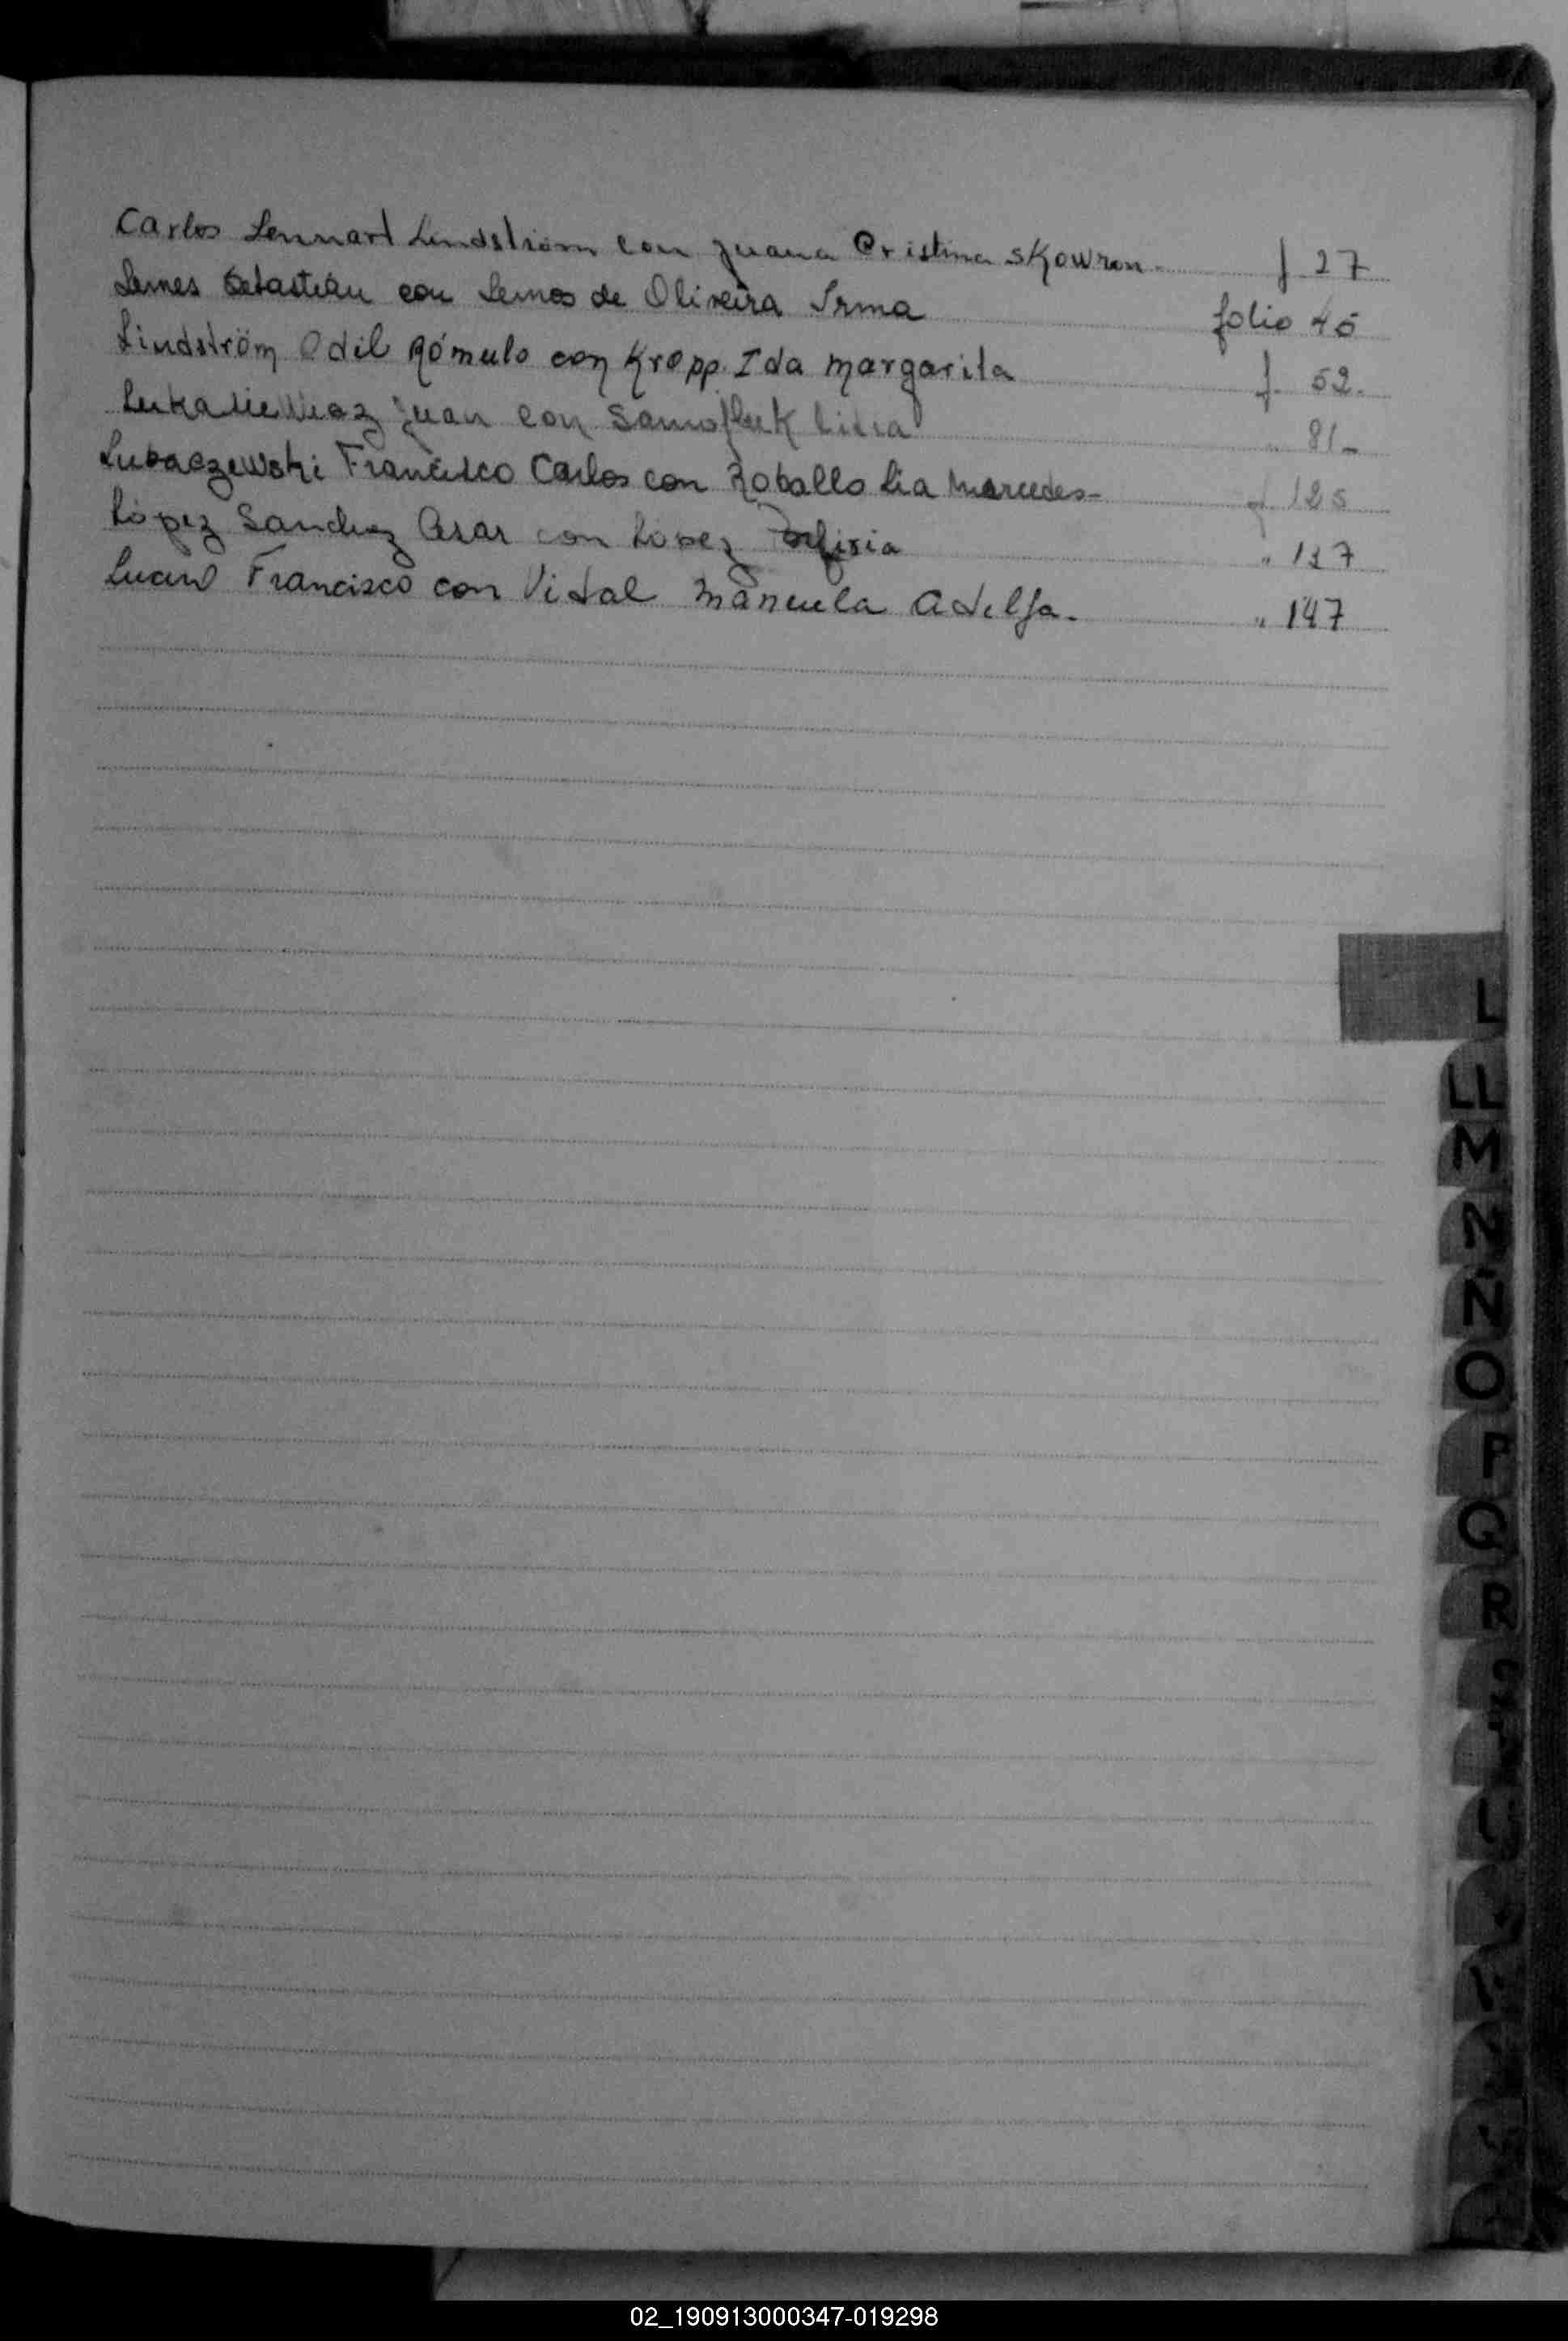 Carlos Lennart Lindström con Juana Cristina Skowron. f 27
Lemes Sebastián con Lemos de Oliveira Irma folio 45
Lindström Odil Rómulo con Kropp Ida Margarita f. 52.
Juan con 81-
Lubaczewski Francisco Carlos con Roballo Lia Mercedes- f 125
López Sanchez Cesar con López Porfiria " 137
Francisco con Vidal Adelfa. " 147
L
LL
M
N
Ñ
O
P
Q
R
02_190913000347-019298